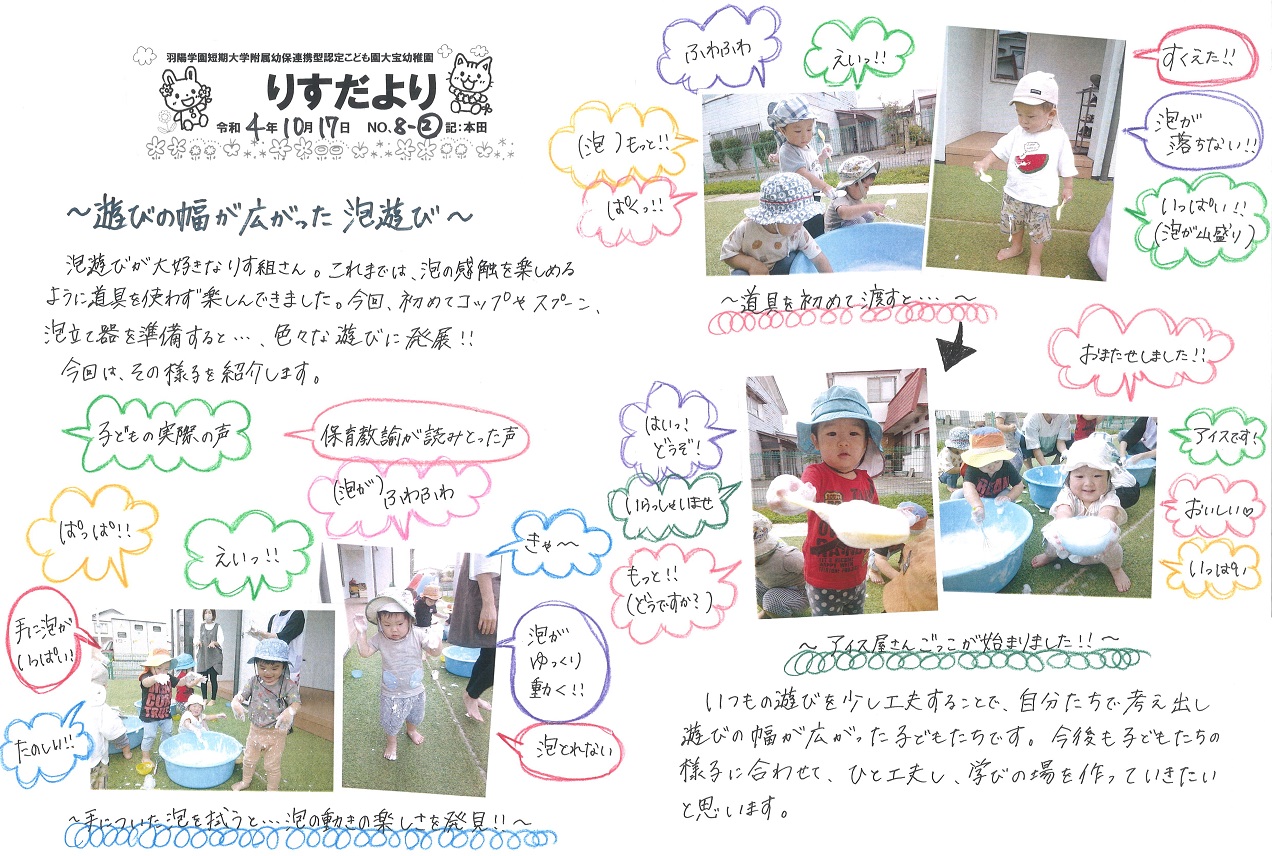 羽陽学園短期大学附属幼保連携型認定こども園大宝幼稚園
りすだより
令和 4年 10月 17日 NO.8-② 記:本田
～遊びの幅が広がった 泡遊び～
泡遊びが大好きなりす組さん。これまでは、泡の感触を楽しめる
ように道具を使わず楽しんできました。今回、初めてコップやスプーン、
泡立て器を準備すると…、色々な遊びに発展!!
今回は、その様子を紹介します。
子どもの実際の声
保育教諭が読みとった声
(泡が)ふわふわ
ぱっぱ!!
えいっ!!
きゃ～～
手に泡が
いっぱい!
たのしい!!
泡が
ゆっくり
動く!!
泡とれない
～手についた泡を拭うと…泡の動きの楽しさを発見!!～
ふわふわ
えいっ!!
すくえた!!
(泡)もっと!!
ぱくっ!!
泡が
落ちない!!
いっぱい!!
(泡が山盛り)
～道具を初めて渡すと… ～
おまたせしました!!
はいっ!
どうぞ!
いらっしゃいませ
もっと!!
(どうですか?)
アイスです!
おいしい♡
いっぱい
～アイス屋さんごっこが始まりました!!～
いつもの遊びを少し工夫することで、自分たちで考え出し
遊びの幅が広がった子どもたちです。今後も子どもたちの
様子に合わせて、ひと工夫し、学びの場を作っていきたい
と思います。